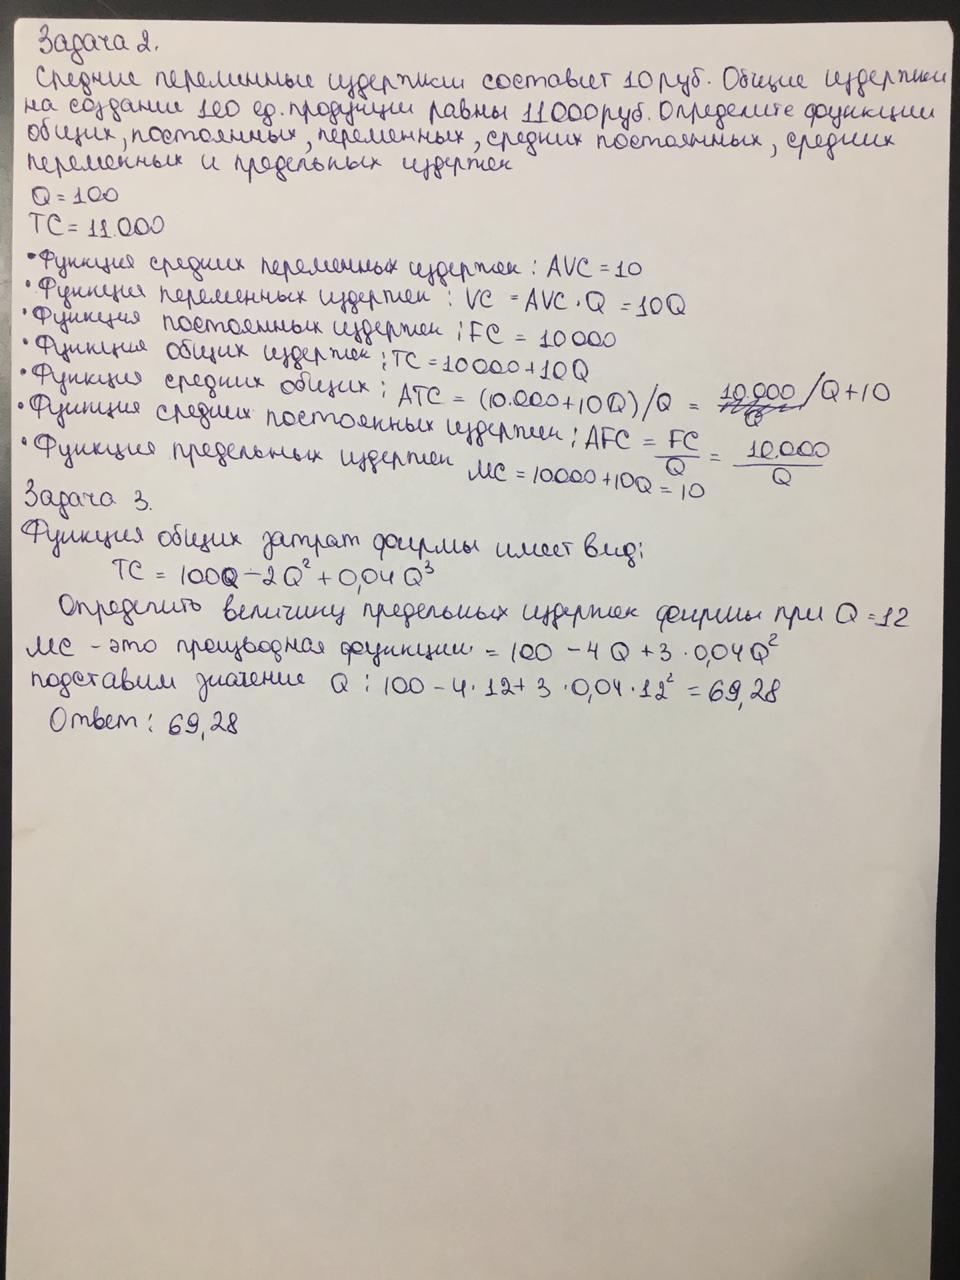 Задача 2.
Средние переменные издержки составит 10 руб. Общие издержки
на создание 100 ед. продукции равны 11000 руб. Определите функции
общих, постоянных, переменных, средних постоянных, средних
переменных и предельных издержек
Q = 100
TC = 11.000
• Функция средних переменных издержек : AVC = 10
• Функция переменных издержек : VC = AVC • Q = 10Q
• Функция постоянных издержек ; FC = 10000
• Функция общих издержек ; TC = 10000 + 10Q
• Функция средних общих ; ATC = (10.000 + 10Q) / Q = 10.000 / Q + 10
• Функция средних постоянных издержек ; AFC = FC / Q = 10.000 / Q
• Функция предельных издержек MC = 10000 + 10Q = 10
Задача 3.
Функция общих затрат фирмы имеет вид;
TC = 100Q - 2Q² + 0,04Q³
Определить величину предельных издержек фирмы при Q = 12
MC - это производная функции = 100 - 4Q + 3 · 0,04Q²
подставим значение Q : 100 - 4 · 12 + 3 · 0,04 · 12² = 69,28
Ответ : 69,28